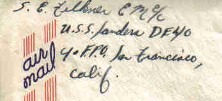 S. E. Zellner CM/c
U.S.S. Sanders DE40
c/o F.P.O. San Francisco,
Calif.
air mail